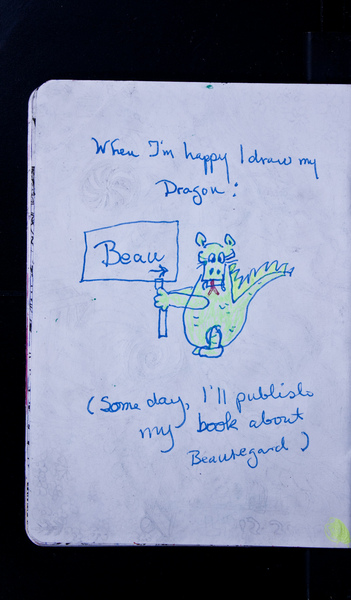 When I'm happy I draw my
Dragon:
Beau
(Some day, I'll publish
my book about
Beauregard)